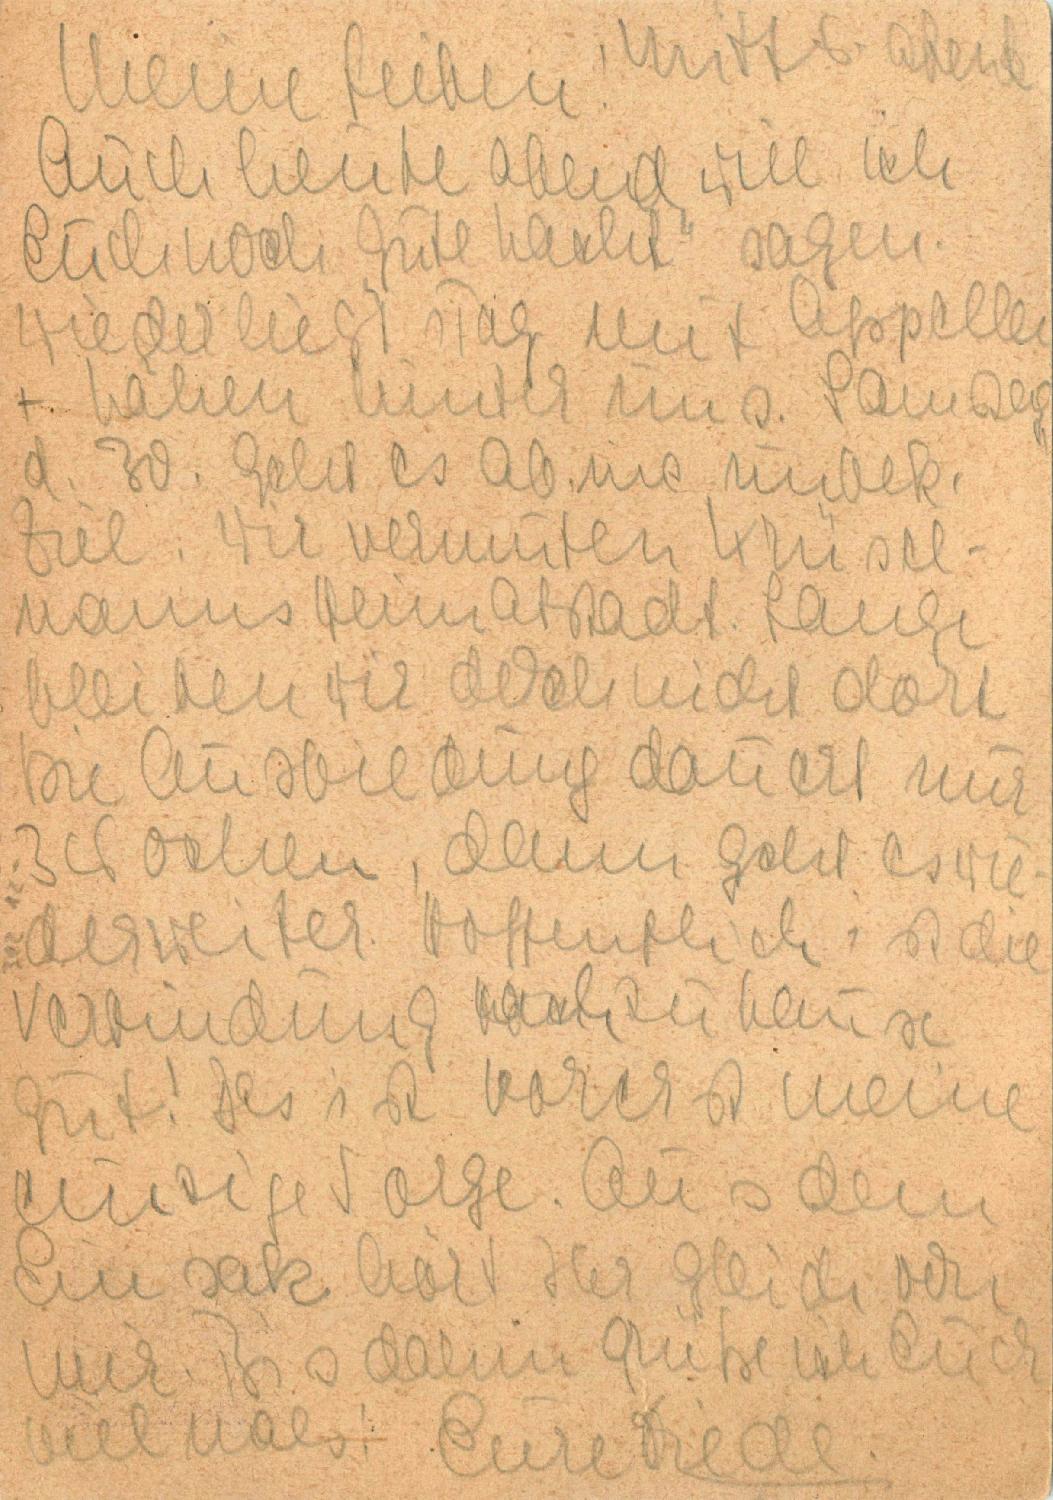 Meine Lieben! Mittw. abend
Auch heute abend will ich
Euch noch „Gute Nacht“ sagen.
Wieder liegt 1 Tag mit Appellen
+ Nähen hinter uns. Samstag
d. 30. geht es ab ins unbek.
Ziel. Wir vermuten
manns Heimatstadt. Lange
bleiben wir doch nicht dort
Die Ausbildung dauert nur
3 Wochen, dann geht es wie-
der weiter. Hoffentlich ist die
Verbindung nach zu hause
gut! Das ist vorerst meine
einzige Sorge. Aus dem
Einsatz hört Ihr gleich von
mir. Bis dahin grüße ich Euch
vielmals! Eure Friedel.